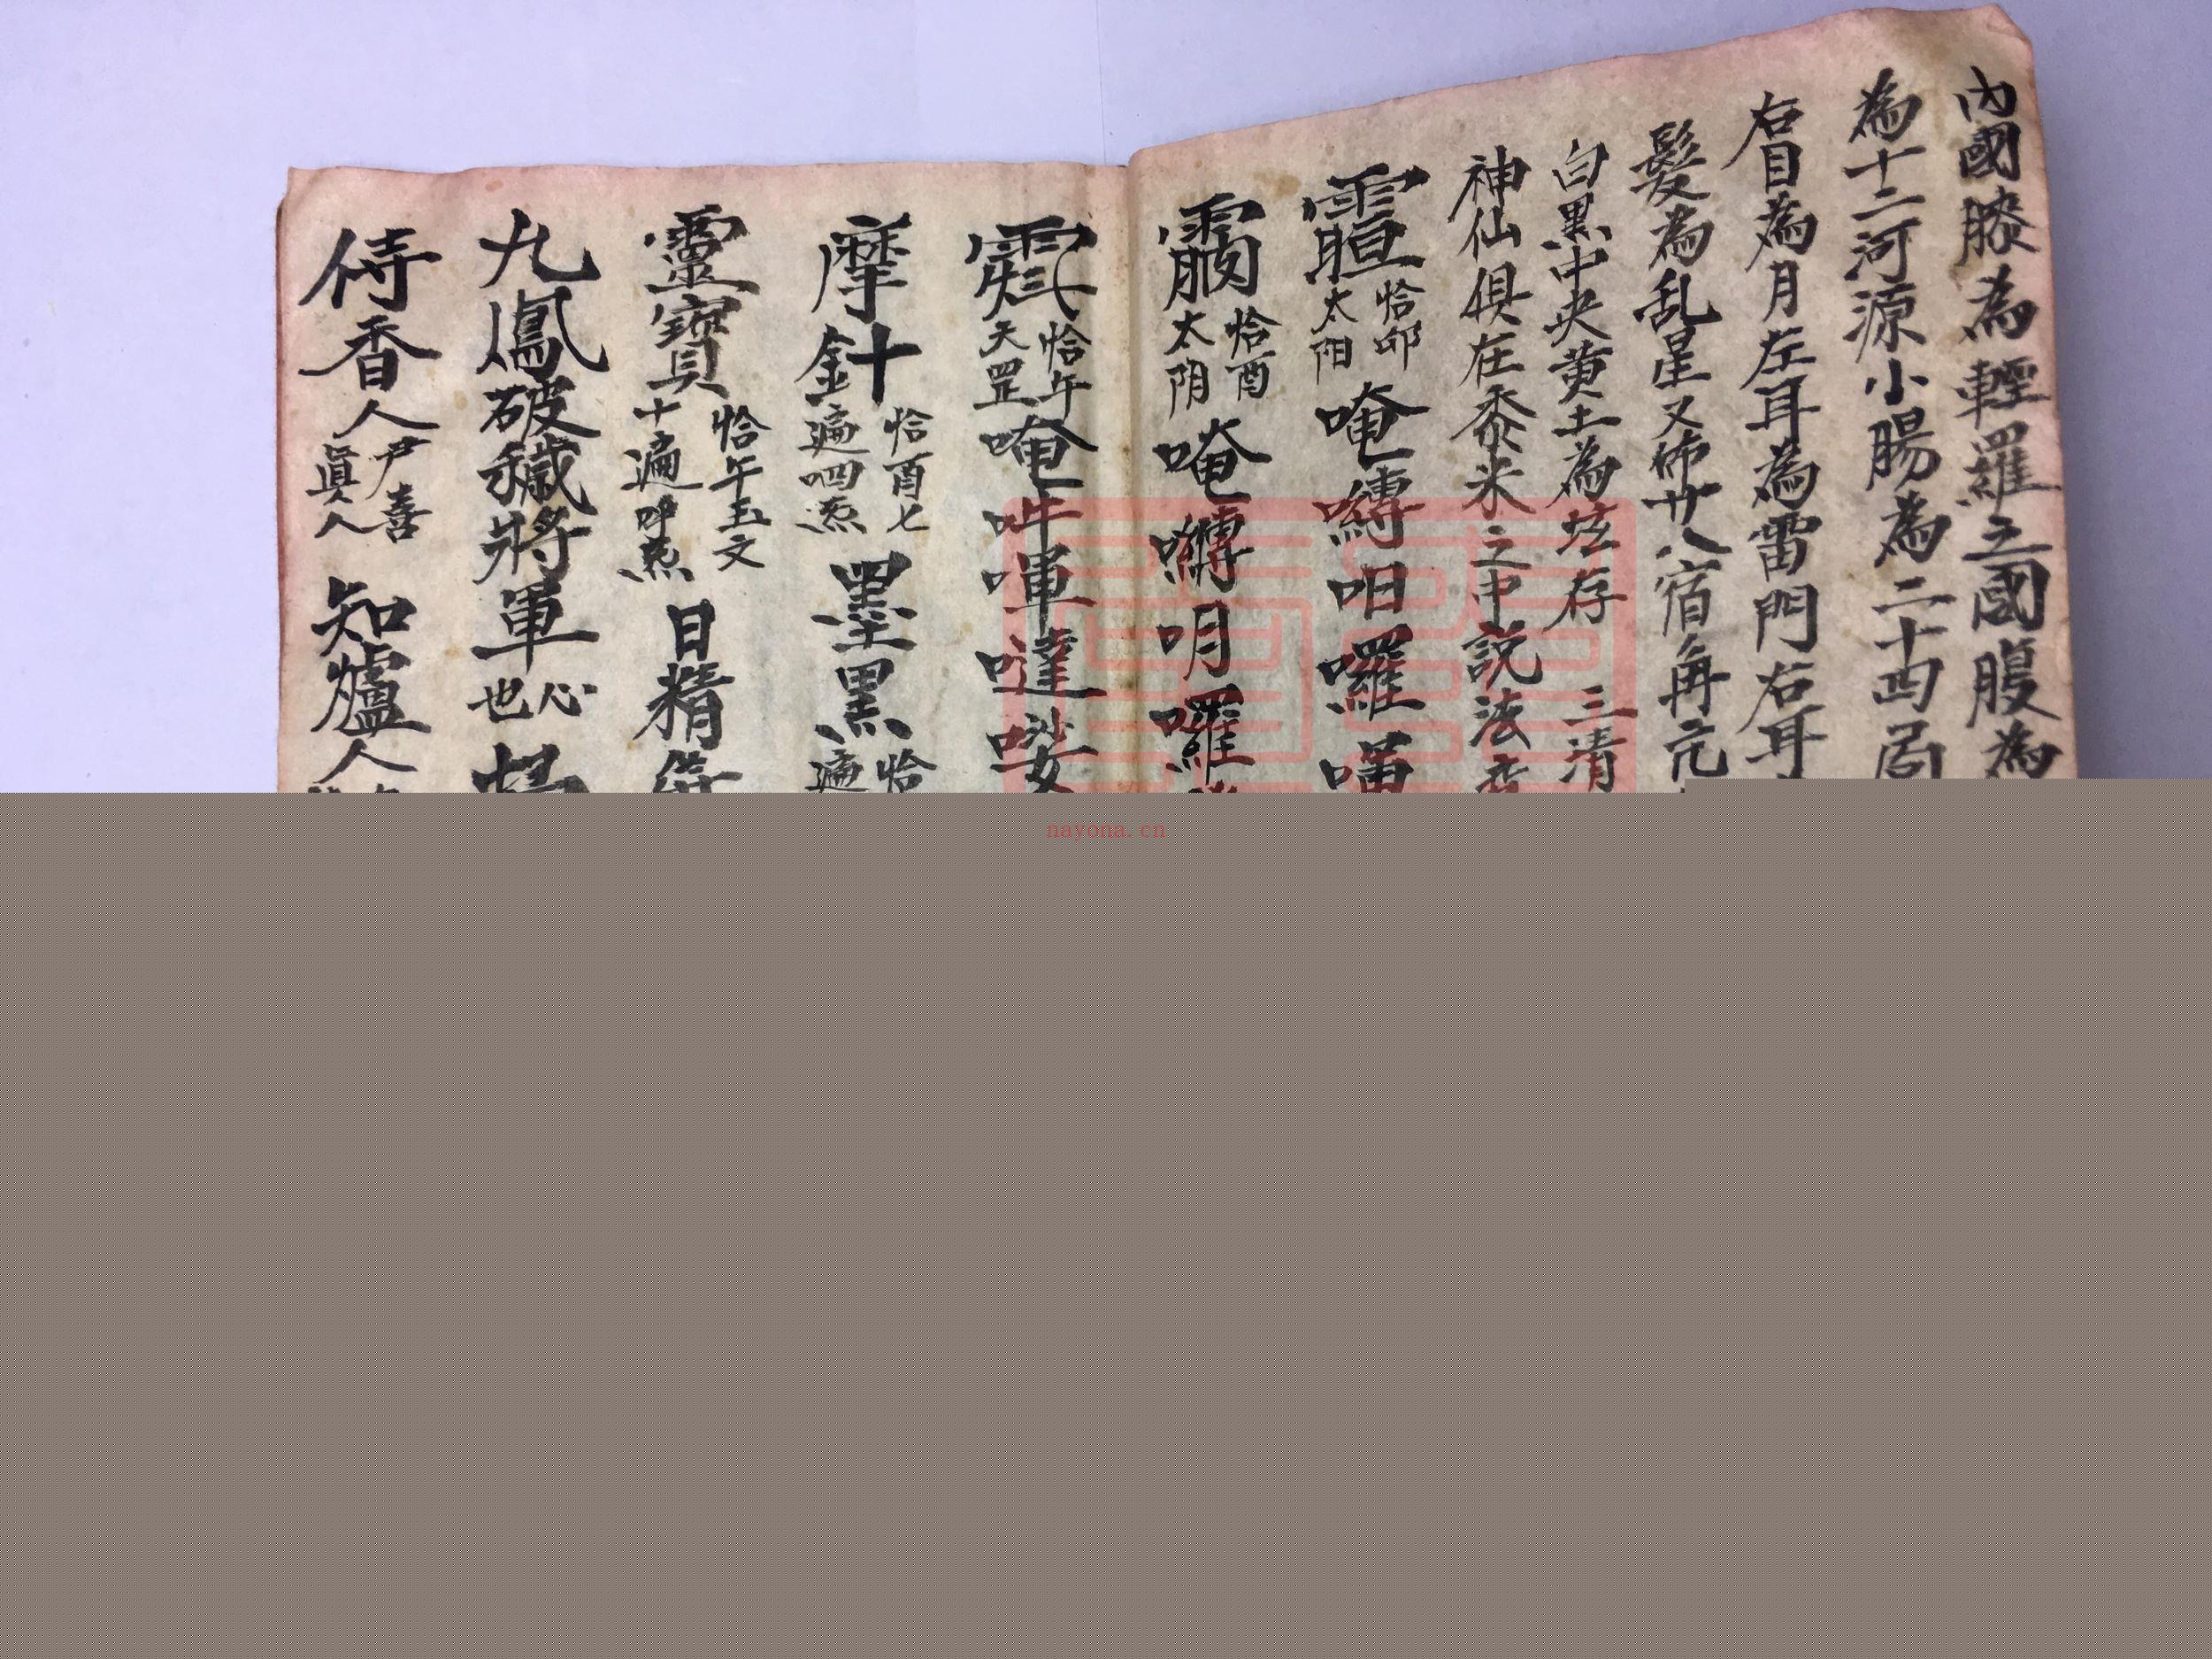 內國膝為輕羅之國腹為
為十二河源小腸為二十四局
右目為月左耳為雷門右耳
髮為乱星又佈廿八宿角亢
白黑中央黄土為垓存 三清
神仙俱在黍米之中説法
恰卯太阳唵嚩呬囉
恰酉太阴唵嚩明囉
恰午天罡唵吽㖸噠
摩針恰酉七遍呬炁 墨黑恰遍
靈寶恰午玉文十遍呼炁 日精
九鳳破穢将軍心也
侍香人尹喜真人 知爐人
nayona.cn